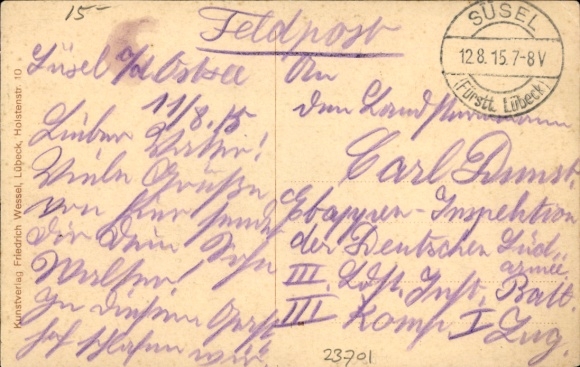 15-
Feldpost
SÜSEL
12.8.15.7-8V
(Fürstt. Lübeck)
Süsel a/d Ostsee
11/8.15
Lieber Vater!
Viele Grüße
von hier sendet
Dir Dein Sohn
Walter!
In diesem Gast-
hof schlafen wir.
An
den Landsturmmann
Carl Dunst.
Etappen-Inspektion
der Deutschen Süd-
armee.
III. Ldst. Inft. Batt.
III Komp I Zug.
23701
Kunstverlag Friedrich Wessel, Lübeck, Holstenstr. 10